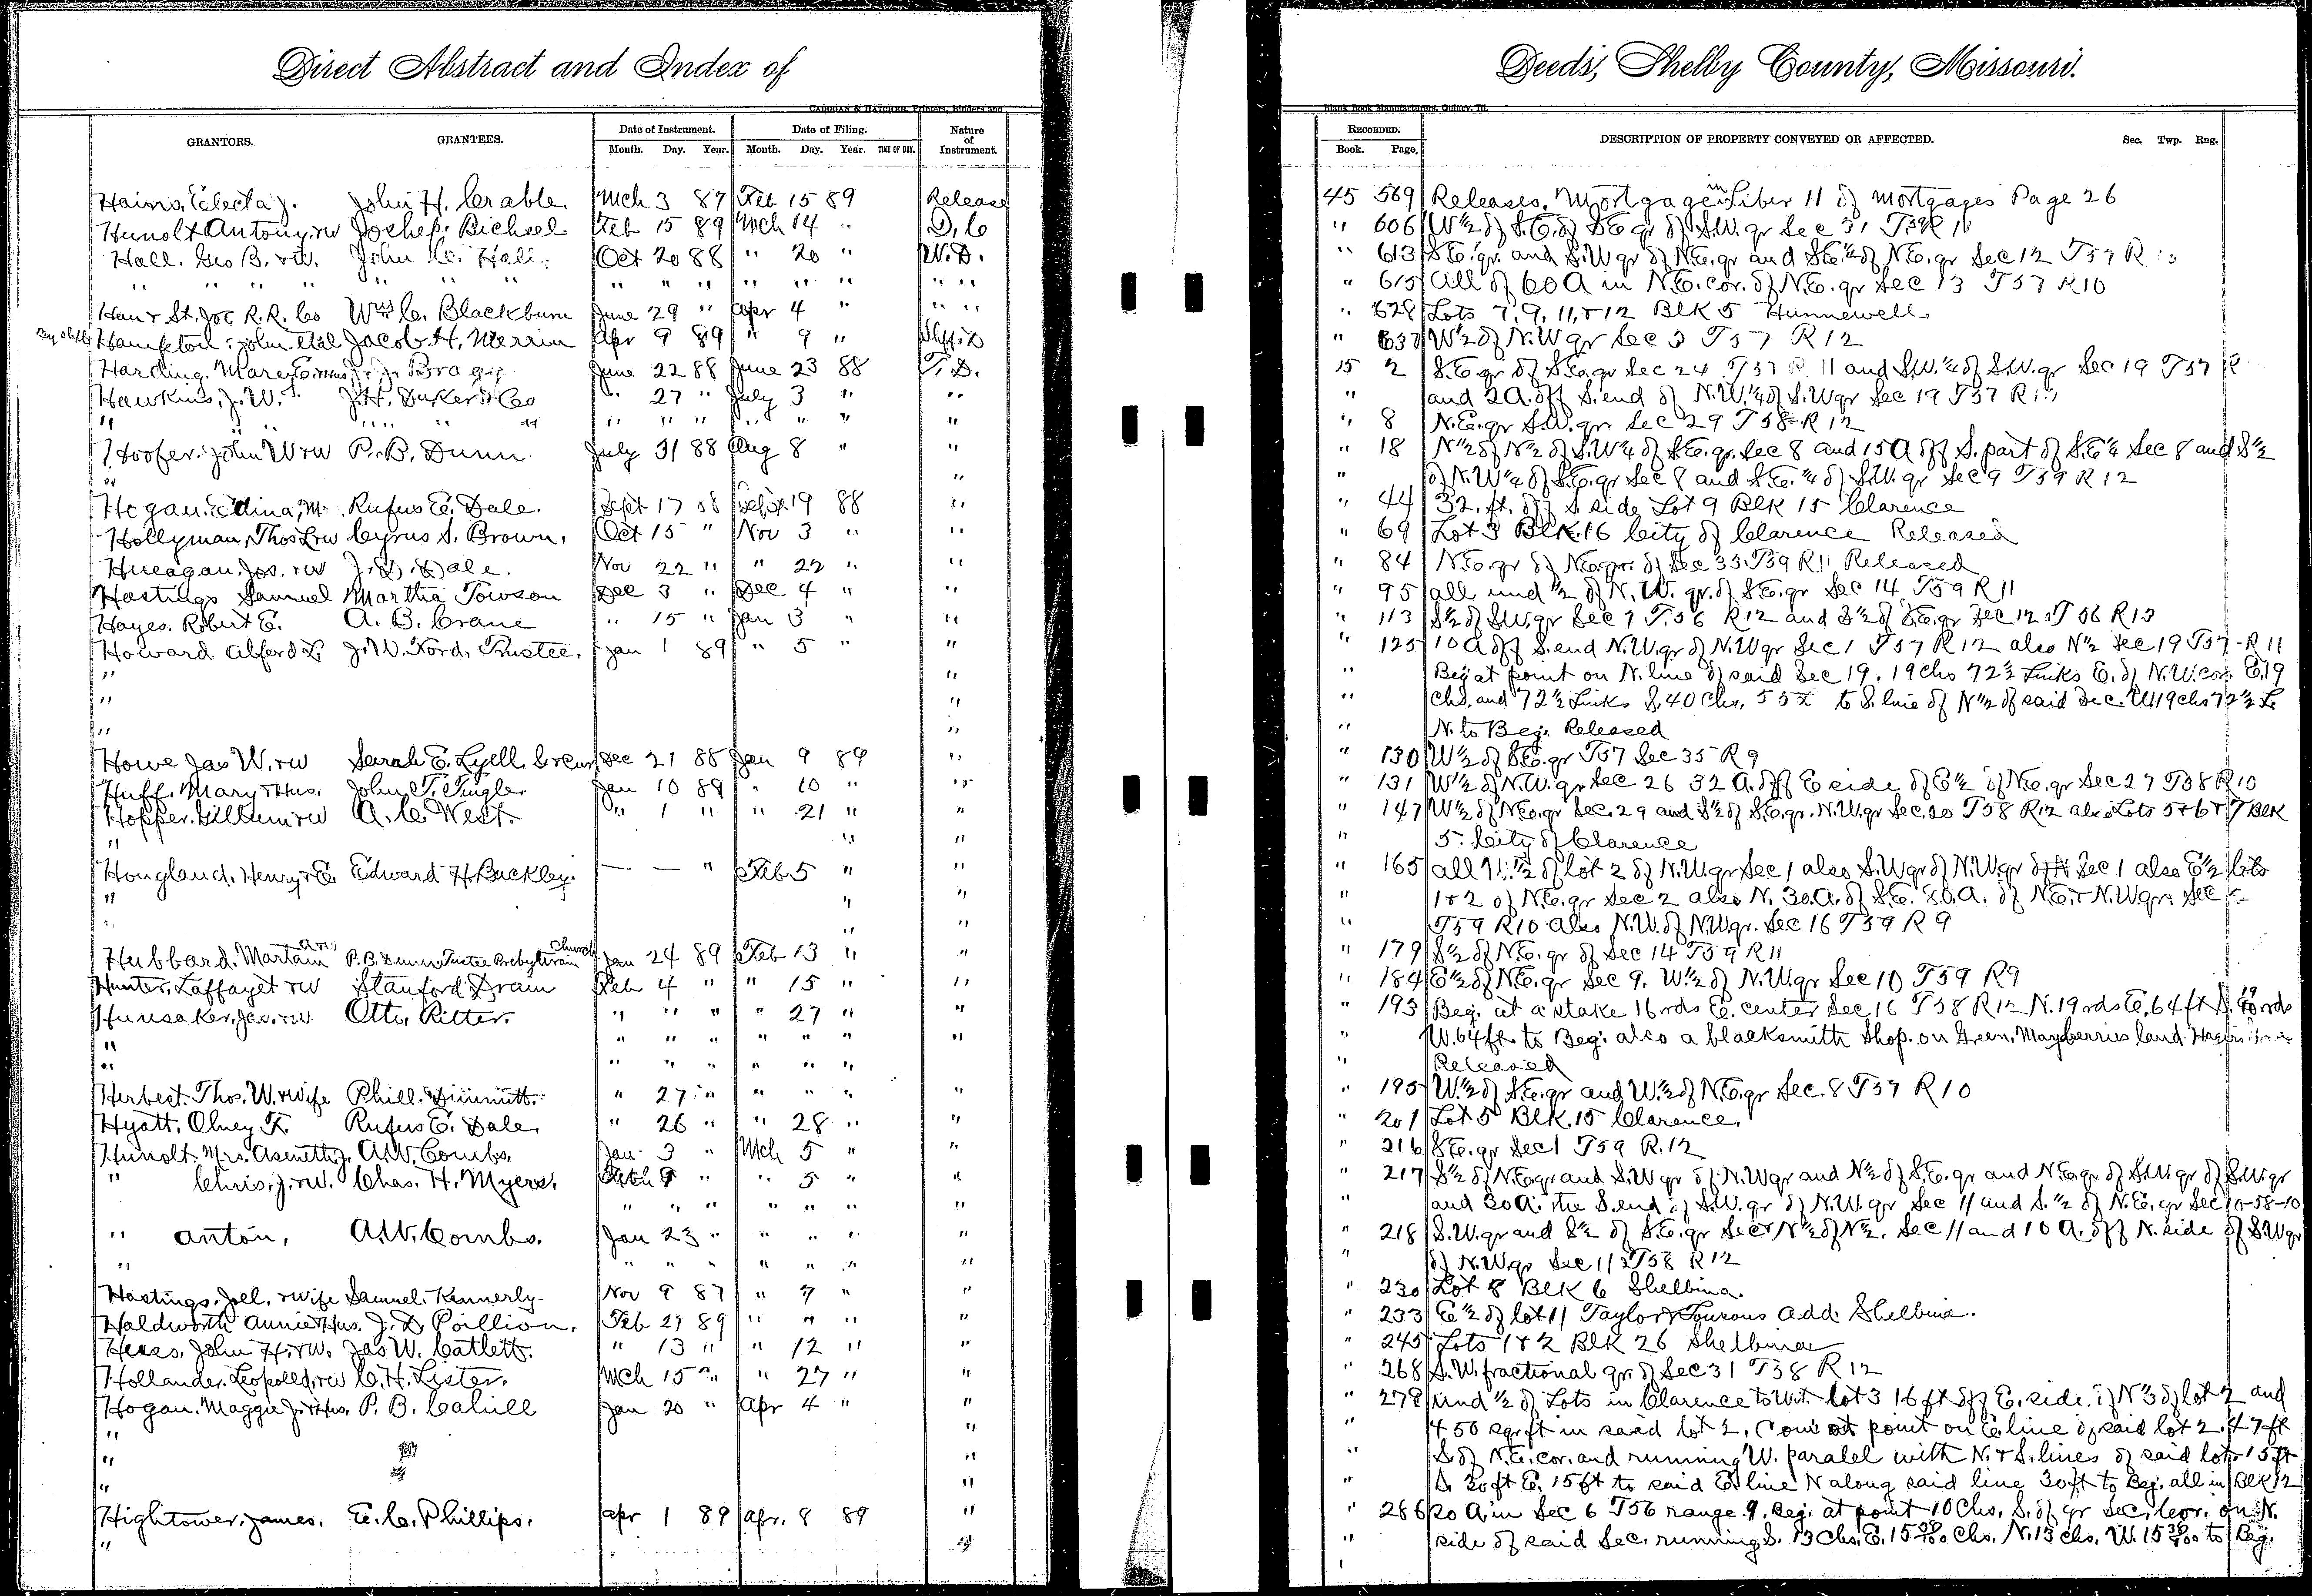 Direct Abstract and Index of Deeds, Shelby County, Missouri.
CADOGAN & HATCHER, Printers, Binders and Blank Book Manufacturers, Quincy, Ill.
GRANTORS. GRANTEES. Date of Instrument. Date of Filing. Nature of Instrument. RECORDED. DESCRIPTION OF PROPERTY CONVEYED OR AFFECTED. Sec. Twp. Rng.
Month. Day. Year. Month. Day. Year. TIME OF DAY. Book. Page.
Hains, Electa J. John H. Crable Mch 3 87 Feb 15 89 Release 45 569 Releases Mortgage in Liber 11 of Mortgages Page 26
Hunolt Antony & w Joshep Bichsel Feb 15 89 Mch 14 " " 606 W 1/2 of S.E. of S E qr of S.W. qr Sec 31
Hall. Geo B. & w. John C. Hall. Oct 20 88 " 20 " W.D. " 613 S.E. qr. and S.W qr of N.E. qr and S.E. 1/4 of N.E. qr Sec 12 T57 R
" " " " " " " " " " " " " " " 615 All of 60 A in N.E. cor. of N.E. qr Sec 13 T57 R10
Han & St. Joe R.R. Co Wm C. Blackburn June 29 " Apr 4 " " " " 628 Lots 7, 9, 11, & 12 Blk 5 Hunnewell.
Hampton, John. et al Jacob. H. Merrin Apr 9 89 " 9 " " 637 W 1/2 of N.W qr Sec 3 T57 R12
Harding. June 22 88 June 23 88 T.D. 15 2 S.E qr of S.E. qr Sec 24 T57 R 11 and S.W. 1/4 of S.W. qr Sec 19 T57 R
Hawkins, J.W. J.H. Duker & Co " 27 " July 3 " " " and 2 A. off S. end of N.W. 1/4 of S.W qr Sec 19 T57 R
" " " " " " " " " " " 8 N.E. qr S.W. qr Sec 29 T58 R 12
Hoofer. John W & w P. B. Dunn July 31 88 Aug 8 " " " 18 N 1/2 of N 1/2 of S.W 1/4 of S.E. qr. Sec 8 and 15 A off S. part of S.E 1/4 Sec 8 and S 1/2
" " " of N.W 1/4 of S.E. qr Sec 8 and S.E. 1/4 of S.W. qr Sec 9 T59 R 12
Hogan. Edina, M. Rufus E. Dale. Sept 17 88 Sept 19 88 " " 44 32. ft. off S. side Lot 9 Blk 15 Clarence
Hollyman, Thos L & w Cyrus S. Brown. Oct 15 " Nov 3 " " " 69 Lot 3 Blk. 16 City of Clarence Released
Hureagan. Jos. & w J.D. Dale. Nov 22 " " 22 " " " 84 N.E. qr of N.E. qr. of Sec 33 T59 R11 Released
Hastings Samuel Martha Towson Dec 3 " Dec 4 " " " 95 all und 1/2 of N.W. qr. of S.E. qr Sec 14 T59 R 11
Hayes. Robert E. A. B. Crane " 15 " Jan 3 " " " 113 S 1/2 of S.W. qr Sec 7 T.56 R12 and S 1/2 of S.E. qr Sec 12 T 56 R13
Howard Alferd L J.W. Ford, Trustee. Jan 1 89 " 5 " " " 125 10 A off S. end N.W. qr of N.W qr Sec 1 T57 R12 also N 1/2 Sec 19 T57 R 11
" " " Beg at point on N. line of said Sec 19, 19 Chs 72 1/2 Links E. of N.W. cor. E. 19
" " " Chs. and 72 1/2 Links S. 40 Chs, 55 L to S. line of N 1/2 of said Sec. W 19 Chs 72 1/2 L
" " " N. to Beg. Released
Howe Jas W. & w Sarah E. Lyell. Dec 21 88 Jan 9 89 " " 130 W 1/2 of S.E. qr T57 Sec 35 R 9
Huff. Mary & Hus. John T. Tingler Jan 10 89 " 10 " " " 131 W 1/2 of N.W. qr Sec 26 32 A. off E side of E 1/2 of N.E. qr Sec 27 T58 R10
Hopper. & w A. C. West. " 1 " " 21 " " " 147 W 1/2 of N.E. qr Sec. 29 and S 1/2 of S.E. qr. N.W. qr Sec. 20 T58 R12 also Lots 5 & 6 & 7 Blk
" " " " 5. City of Clarence
Hougland. Henry E. Edward H. Buckley. — — " Feb 5 " " " 165 all 1/2 of lot 2 of N.W. qr Sec 1 also S.W qr of N.W. qr Sec 1 also E 1/2 lots
" " " " 1 & 2 of N.E. qr Sec 2 also N. 30. A. of S.E. 80. A. of N.E. & N.W. qr. Sec
" " " " T59 R10 also N.W. of N.W qr. Sec 16 T59 R 9
Hubbard. Martain & w P. B. Dunn Trustee Presbyterian Church Jan 24 89 Feb 13 " " " 179 S 1/2 of N.E. qr of Sec 14 T59 R11
Hunter, Laffayet & w Stanford Drain Feb 4 " " 15 " " " 184 E 1/2 of N.E. qr Sec 9. W 1/2 of N.W. qr Sec 10 T59 R9
Hunsaker, Jac. & w Otto Ritter. " " " " 27 " " " 193 Beg. at a stake 16 rds E. center Sec 16 T58 R12 N. 19 rds E. 64 ft S. 19 rds
" " " " " " " " " W. 64 ft to Beg. also a blacksmith shop. on Green, Mayberries land
" " " " " " " " Released
Herbest. Thos. W. & wife Phill. Dimmitt. " 27 " " " " " " 195 W. 1/2 of S.E. qr and W. 1/2 of N.E. qr Sec. 8 T57 R10
Hyatt, Olney F. Rufus E. Dale " 26 " " 28 " " " 201 Lot 5 Blk. 15 Clarence.
Hunolt. Mrs. Asenetth J. A.W. Combs. Jan. 3 " Mch 5 " " " 216 S.E. qr Sec 1 T59 R.12
" Chris. J. & w. Chas. H. Myers. " " 5 " " " 217 S 1/2 of N.E. qr and S.W qr of N.W qr and N 1/2 of S.E. qr and N.E. qr of S.W. qr of S.W. qr
" " " " " " " " and 30 A. the S. end of S.W. qr of N.W. qr Sec 11 and S. 1/2 of N.E. qr Sec 10-58-10
" Anton, A.W. Combs. Jan 23 " " " " " " 218 S.W. qr and S 1/2 of S.E. qr Sec & N 1/2 of N 1/2. Sec 11 and 10 A. off N. side of S.W qr
" " " " " " " " " of N.W. qr Sec 11 T58 R12
Hastings. Joel. & wife Samuel. Kennerly. Nov 9 87 " 7 " " " 230 Lot 8 Blk 6 Shelbina.
Haldworth Annie & Hus. J. D. Poillion. Feb 21 89 " " " " " 233 E 1/2 of lot 11 Taylor & Add. Shelbina.
Hess. John H. & w. Jas W. Catlett. " 13 " " 12 " " " 245 Lots 1 & 2 Blk 26 Shelbina
Hollander. Leopold, & w C. H. Lister. Mch 15 " " 27 " " " 268 S.W. fractional qr. of Sec 31 T58 R12
Hogan. Maggie J. & Hus. P. B. Cahill Jan 20 " Apr 4 " " " 279 Und 1/2 of Lots in Clarence to Wit. lot 3 16 ft off E. side. of N 1/3 of lot 2 and
" " " 450 sqr ft in said lot 2, Com at point on E. line of said lot 2. 47 ft
" " " S. of N.E. cor. and running W. paralel with N. & S. lines of said lot. 15 ft
" " " S. 30 ft E. 15 ft to said E. line N along said line 30 ft to Beg. all in Blk 12
Hightower, James. E. C. Phillips. Apr 1 89 Apr. 8 89 " " 286 20 A. in Sec 6 T56 range 9. Beg. at point 10 Chs. S. of qr Sec. Cor. on N.
" " " side of said Sec. running S. 13 Chs. E. 15 Chs. N. 13 Chs. W. 15 to Beg.